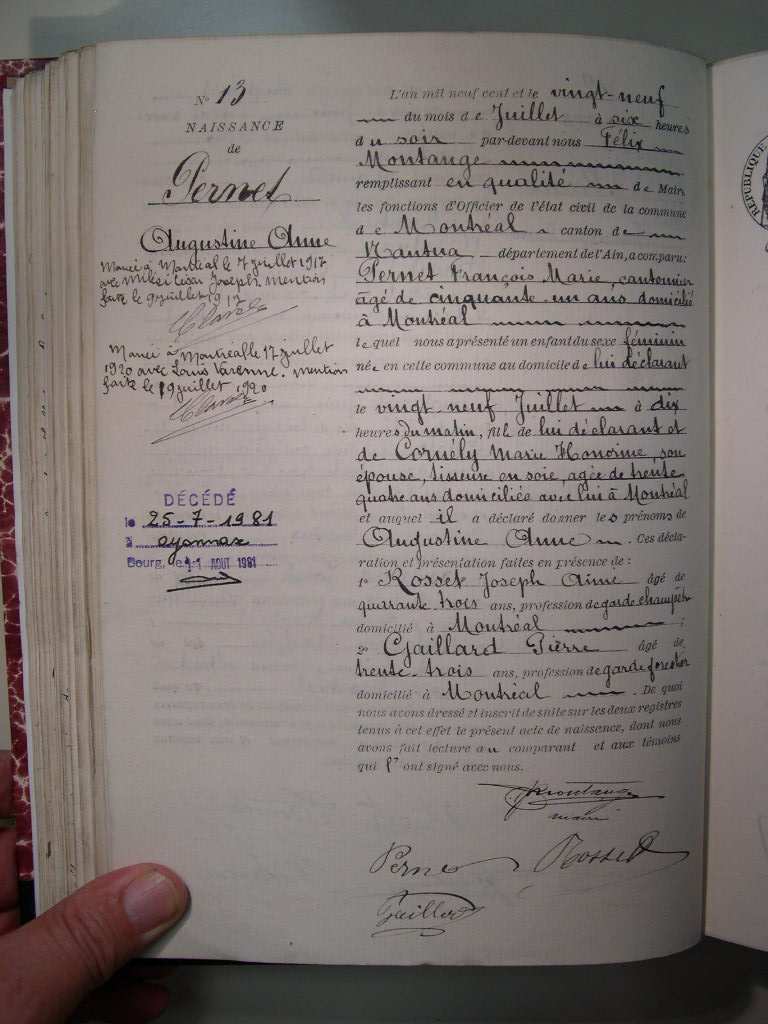 N° 13
NAISSANCE
de
Pernet
Augustine Anne
Mariée à Montréal le 7 juillet 1917
avec Joseph. mention
faite le 9 juillet 1917
Mariée à Montréal le 17 juillet
1920 avec Louis Varenne. mention
faite le 19 juillet 1920
DÉCÉDÉ
le 25-7-1981
à oyonnax
Bourg, le 11 AOUT 1981
L'an mil neuf cent et le vingt-neuf
du mois de Juillet à six heures
du soir par-devant nous Félix
Montange
remplissant en qualité de Maire
les fonctions d'Officier de l'état civil de la commune
de Montréal canton de
Nantua département de l'Ain, a comparu:
Pernet François Marie, cantonnier
âgé de cinquante un ans domicilié
à Montréal
lequel nous a présenté un enfant du sexe féminin
née en cette commune au domicile de lui déclarant
le vingt-neuf Juillet à dix
heures du matin, fille de lui déclarant et
de Cornély Marie Honorine, son
épouse, tisseuse en soie, agée de trente
quatre ans domiciliée avec lui à Montréal
et auquel il a déclaré donner les prénoms de
Augustine Anne. Ces décla-
ration et présentation faites en présence de:
1° Rosset Joseph Aimé âgé de
quarante trois ans, profession de garde champêtre
domicilié à Montréal;
2° Gaillard Pierre âgé de
trente-trois ans, profession de garde forestier
domicilié à Montréal. De quoi
nous avons dressé et inscrit de suite sur les deux registres
tenus à cet effet le présent acte de naissance, dont nous
avons fait lecture au comparant et aux témoins
qui ont signé avec nous.
Montange
maire
Pernet Rosset
Gaillard
RÉPUBLIQUE